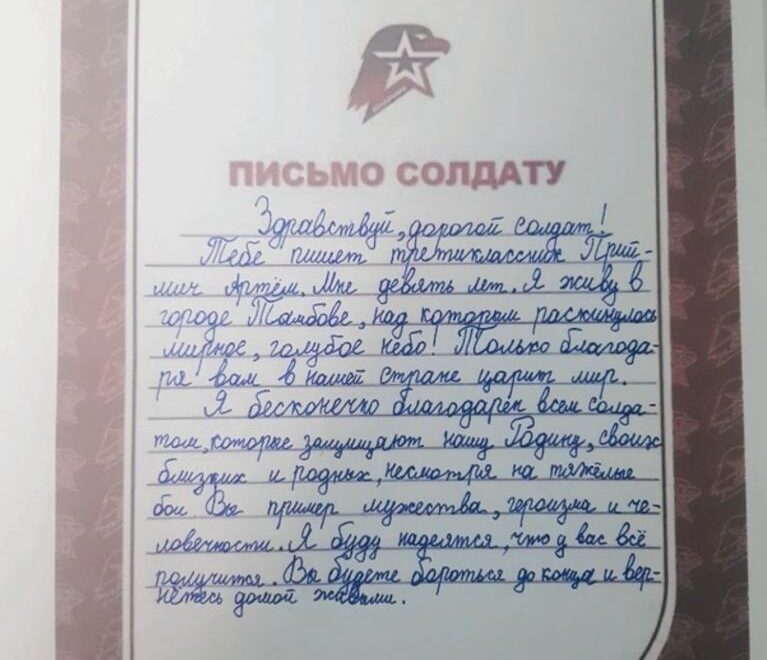 ПИСЬМО СОЛДАТУ
Здравствуй, дорогой солдат!
Тебе пишет третиклассник Прий-
мич Артём. Мне девять лет. Я живу в
городе Тамбове, над которым раскинулось
мирное, голубое небо! Только благода-
ря вам в нашей стране царит мир.
Я бесконечно благодарен всем солда-
том, которые защищают нашу Родину, своих
близких и родных, несмотря на тяжёлые
бои. Вы пример мужества, героизма и че-
ловечности. Я буду надеятся, что у вас всё
получится. Вы будете бороться до конца и вер-
нётесь домой живыми.